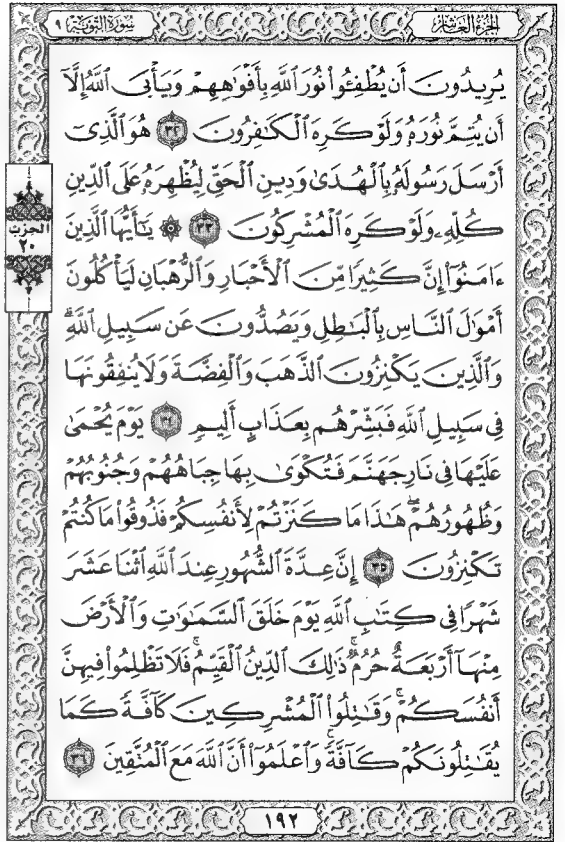 سُورَةُ التَّوْبَةِ ٩
الجُزْءُ العَاشِرُ
يُرِيدُونَ أَن يُطْفِـُٔوا۟ نُورَ ٱللَّهِ بِأَفْوَٰهِهِمْ وَيَأْبَى ٱللَّهُ إِلَّآ
أَن يُتِمَّ نُورَهُۥ وَلَوْ كَرِهَ ٱلْكَـٰفِرُونَ ٣٢ هُوَ ٱلَّذِىٓ
أَرْسَلَ رَسُولَهُۥ بِٱلْهُدَىٰ وَدِينِ ٱلْحَقِّ لِيُظْهِرَهُۥ عَلَى ٱلدِّينِ
كُلِّهِۦ وَلَوْ كَرِهَ ٱلْمُشْرِكُونَ ٣٣ ۞ يَـٰٓأَيُّهَا ٱلَّذِينَ
ءَامَنُوٓا۟ إِنَّ كَثِيرًا مِّنَ ٱلْأَحْبَارِ وَٱلرُّهْبَانِ لَيَأْكُلُونَ
أَمْوَٰلَ ٱلنَّاسِ بِٱلْبَـٰطِلِ وَيَصُدُّونَ عَن سَبِيلِ ٱللَّهِ ۗ
وَٱلَّذِينَ يَكْنِزُونَ ٱلذَّهَبَ وَٱلْفِضَّةَ وَلَا يُنفِقُونَهَا
فِى سَبِيلِ ٱللَّهِ فَبَشِّرْهُم بِعَذَابٍ أَلِيمٍ ٣٤ يَوْمَ يُحْمَىٰ
عَلَيْهَا فِى نَارِ جَهَنَّمَ فَتُكْوَىٰ بِهَا جِبَاهُهُمْ وَجُنُوبُهُمْ
وَظُهُورُهُمْ ۖ هَـٰذَا مَا كَنَزْتُمْ لِأَنفُسِكُمْ فَذُوقُوا۟ مَا كُنتُمْ
تَكْنِزُونَ ٣٥ إِنَّ عِدَّةَ ٱلشُّهُورِ عِندَ ٱللَّهِ ٱثْنَا عَشَرَ
شَهْرًا فِى كِتَـٰبِ ٱللَّهِ يَوْمَ خَلَقَ ٱلسَّمَـٰوَٰتِ وَٱلْأَرْضَ
مِنْهَآ أَرْبَعَةٌ حُرُمٌ ۚ ذَٰلِكَ ٱلدِّينُ ٱلْقَيِّمُ ۚ فَلَا تَظْلِمُوا۟ فِيهِنَّ
أَنفُسَكُمْ ۚ وَقَـٰتِلُوا۟ ٱلْمُشْرِكِينَ كَآفَّةً كَمَا
يُقَـٰتِلُونَكُمْ كَآفَّةً ۚ وَٱعْلَمُوٓا۟ أَنَّ ٱللَّهَ مَعَ ٱلْمُتَّقِينَ ٣٦
الحِزْبُ
٢٠
١٩٢